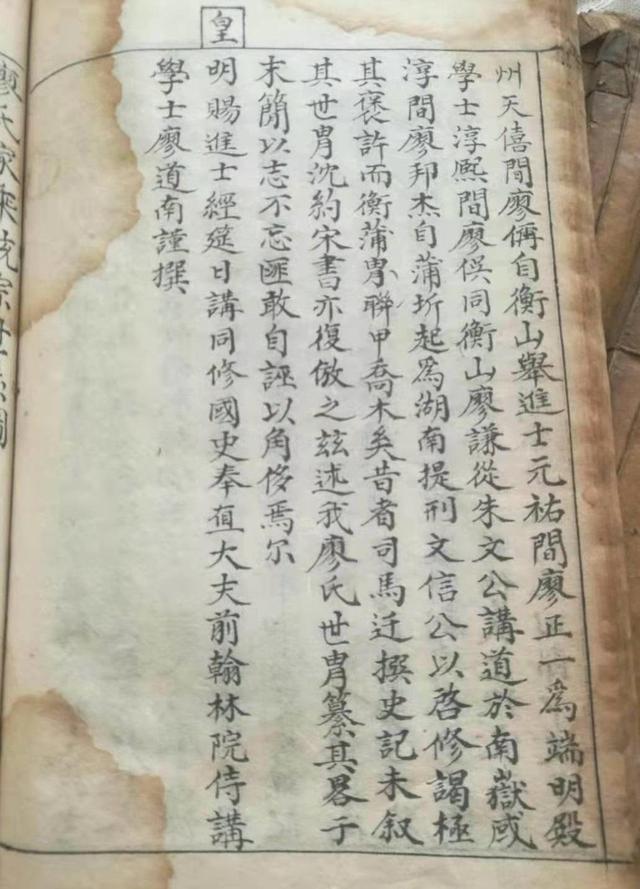 州天僖間廖偁自衡山舉進士元祐間廖正一爲端明殿
學士淳熙間廖俁同衡山廖謙從朱文公講道於南嶽咸
淳間廖邦杰自蒲圻起爲湖南提刑文信公以啓修謁極
其褒許而衡蒲胄聯甲喬木矣昔者司馬迁撰史記未叙
其世胄沈約宋書亦復倣之玆述我廖氏世胄纂其畧于
末簡以志不忘匪敢自誣以角侈焉尔
皇
明賜進士經筵日講同修國史奉直大夫前翰林院侍講
學士廖道南謹撰
廖氏家乘